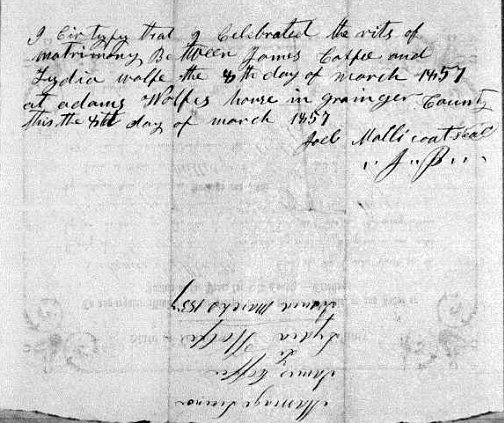 I Cirtyfy that I Celebrated the rits of
matrimony Between James Coffee and
Lydia wolfe the 8th day of march 1857
at adams Wolfes house in grainger County
this the 8th day of march 1857
Joel Mallicoat seal
J. P.
Marriage License
James Coffee
To
Lydia Wolfe
Issued March 1857